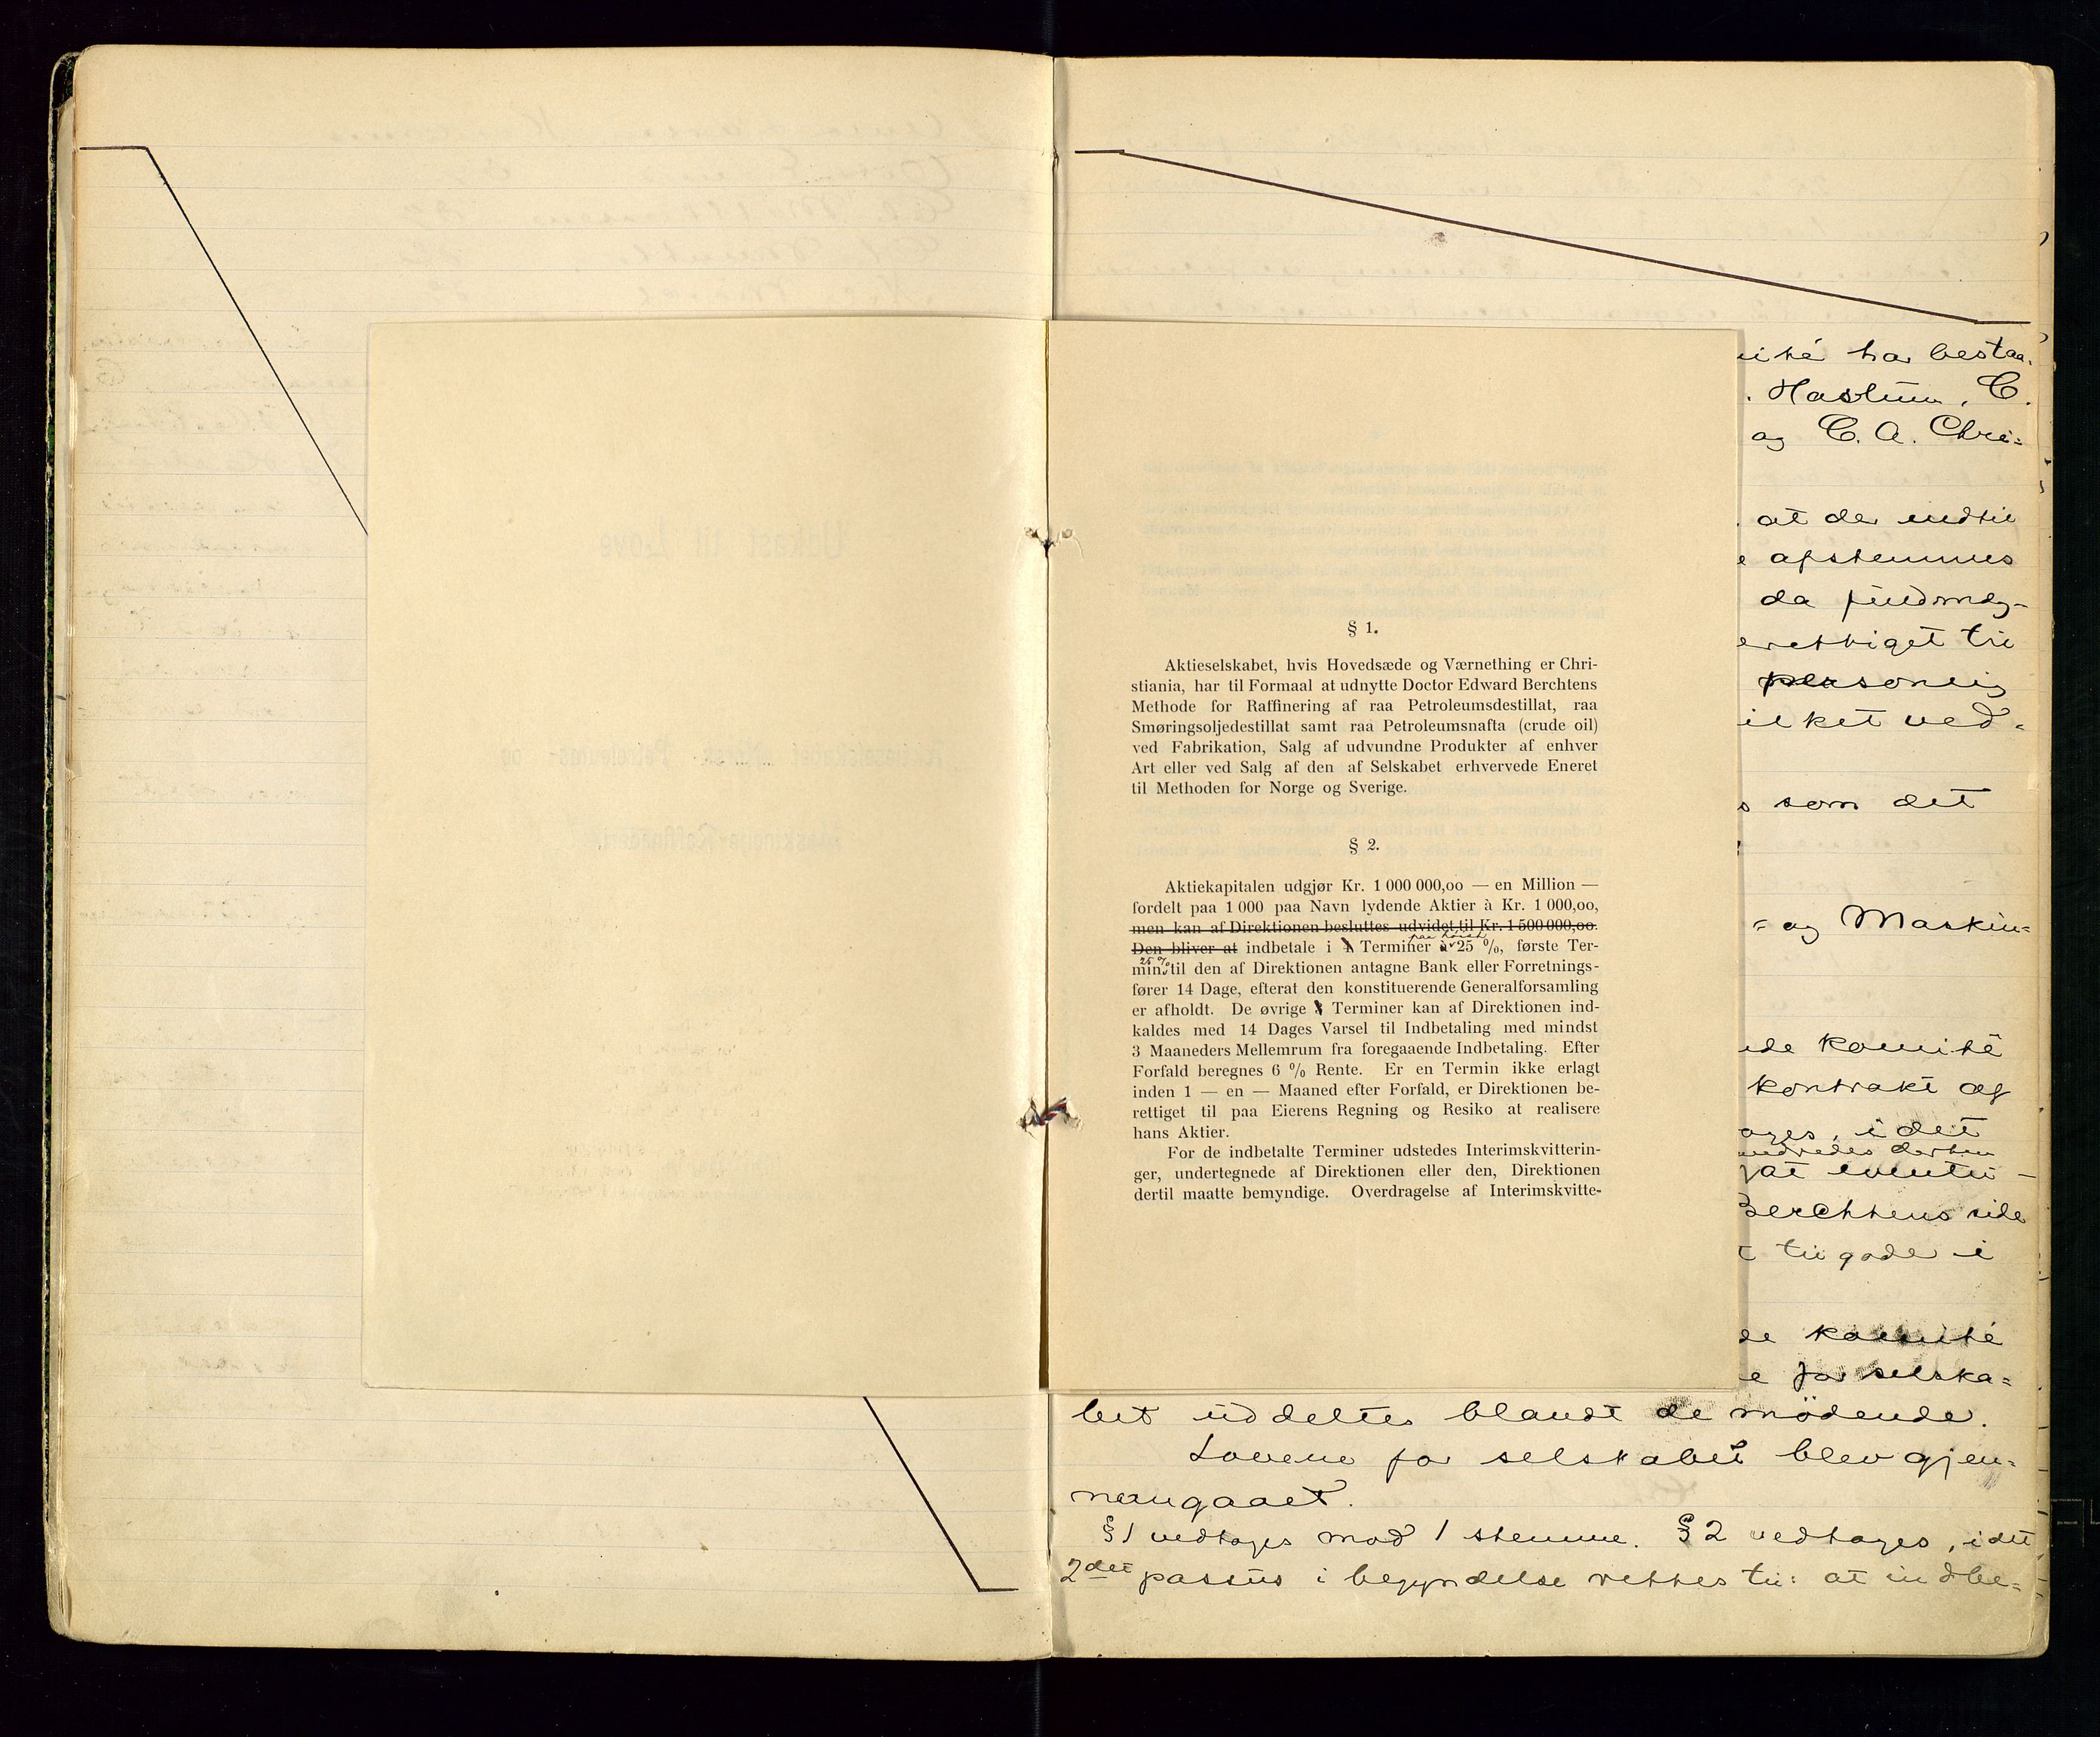 § 1.
Aktieselskabet, hvis Hovedsæde og Værnething er Chri-
stiania, har til Formaal at udnytte Doctor Edward Berchtens
Methode for Raffinering af raa Petroleumsdestillat, raa
Smøringsoljedestillat samt raa Petroleumsnafta (crude oil)
ved Fabrikation, Salg af udvundne Produkter af enhver
Art eller ved Salg af den af Selskabet erhvervede Eneret
til Methoden for Norge og Sverige.
§ 2.
Aktiekapitalen udgjør Kr. 1 000 000,oo — en Million —
fordelt paa 1 000 paa Navn lydende Aktier à Kr. 1 000,oo,
men kan af Direktionen besluttes udvidet til Kr. 1 500 000,oo.
Den bliver at indbetale i 4 Terminer à paa høist 25 %, første Ter-
min 25 % til den af Direktionen antagne Bank eller Forretnings-
fører 14 Dage, efterat den konstituerende Generalforsamling
er afholdt. De øvrige Terminer kan af Direktionen ind-
kaldes med 14 Dages Varsel til Indbetaling med mindst
3 Maaneders Mellemrum fra foregaaende Indbetaling. Efter
Forfald beregnes 6 % Rente. Er en Termin ikke erlagt
inden 1 — en — Maaned efter Forfald, er Direktionen be-
rettiget til paa Eierens Regning og Resiko at realisere
hans Aktier.
For de indbetalte Terminer udstedes Interimskvitterin-
ger, undertegnede af Direktionen eller den, Direktionen
dertil maatte bemyndige. Overdragelse af Interimskvitte-
ité har bestaa-
. Haslum, C.
og C. A. Chri=
at der indtil
e afstemmes
da fuldmæg-
erettiget til
personlig
ilket ved-
s som det
- og Maskin=
nde komité
kontrakt og
ages, i det
derhen
at eventu-
Berchtens side
t tilgode i
de komité
e for selska=
bet uddeltes blandt de mødende.
Lovene for selskabet blev gjen-
nemgaaet.
§ 1 vedtages mod 1 stemme. § 2 vedtages, idet
2det passus i begyndelse rettes til: at indbe=